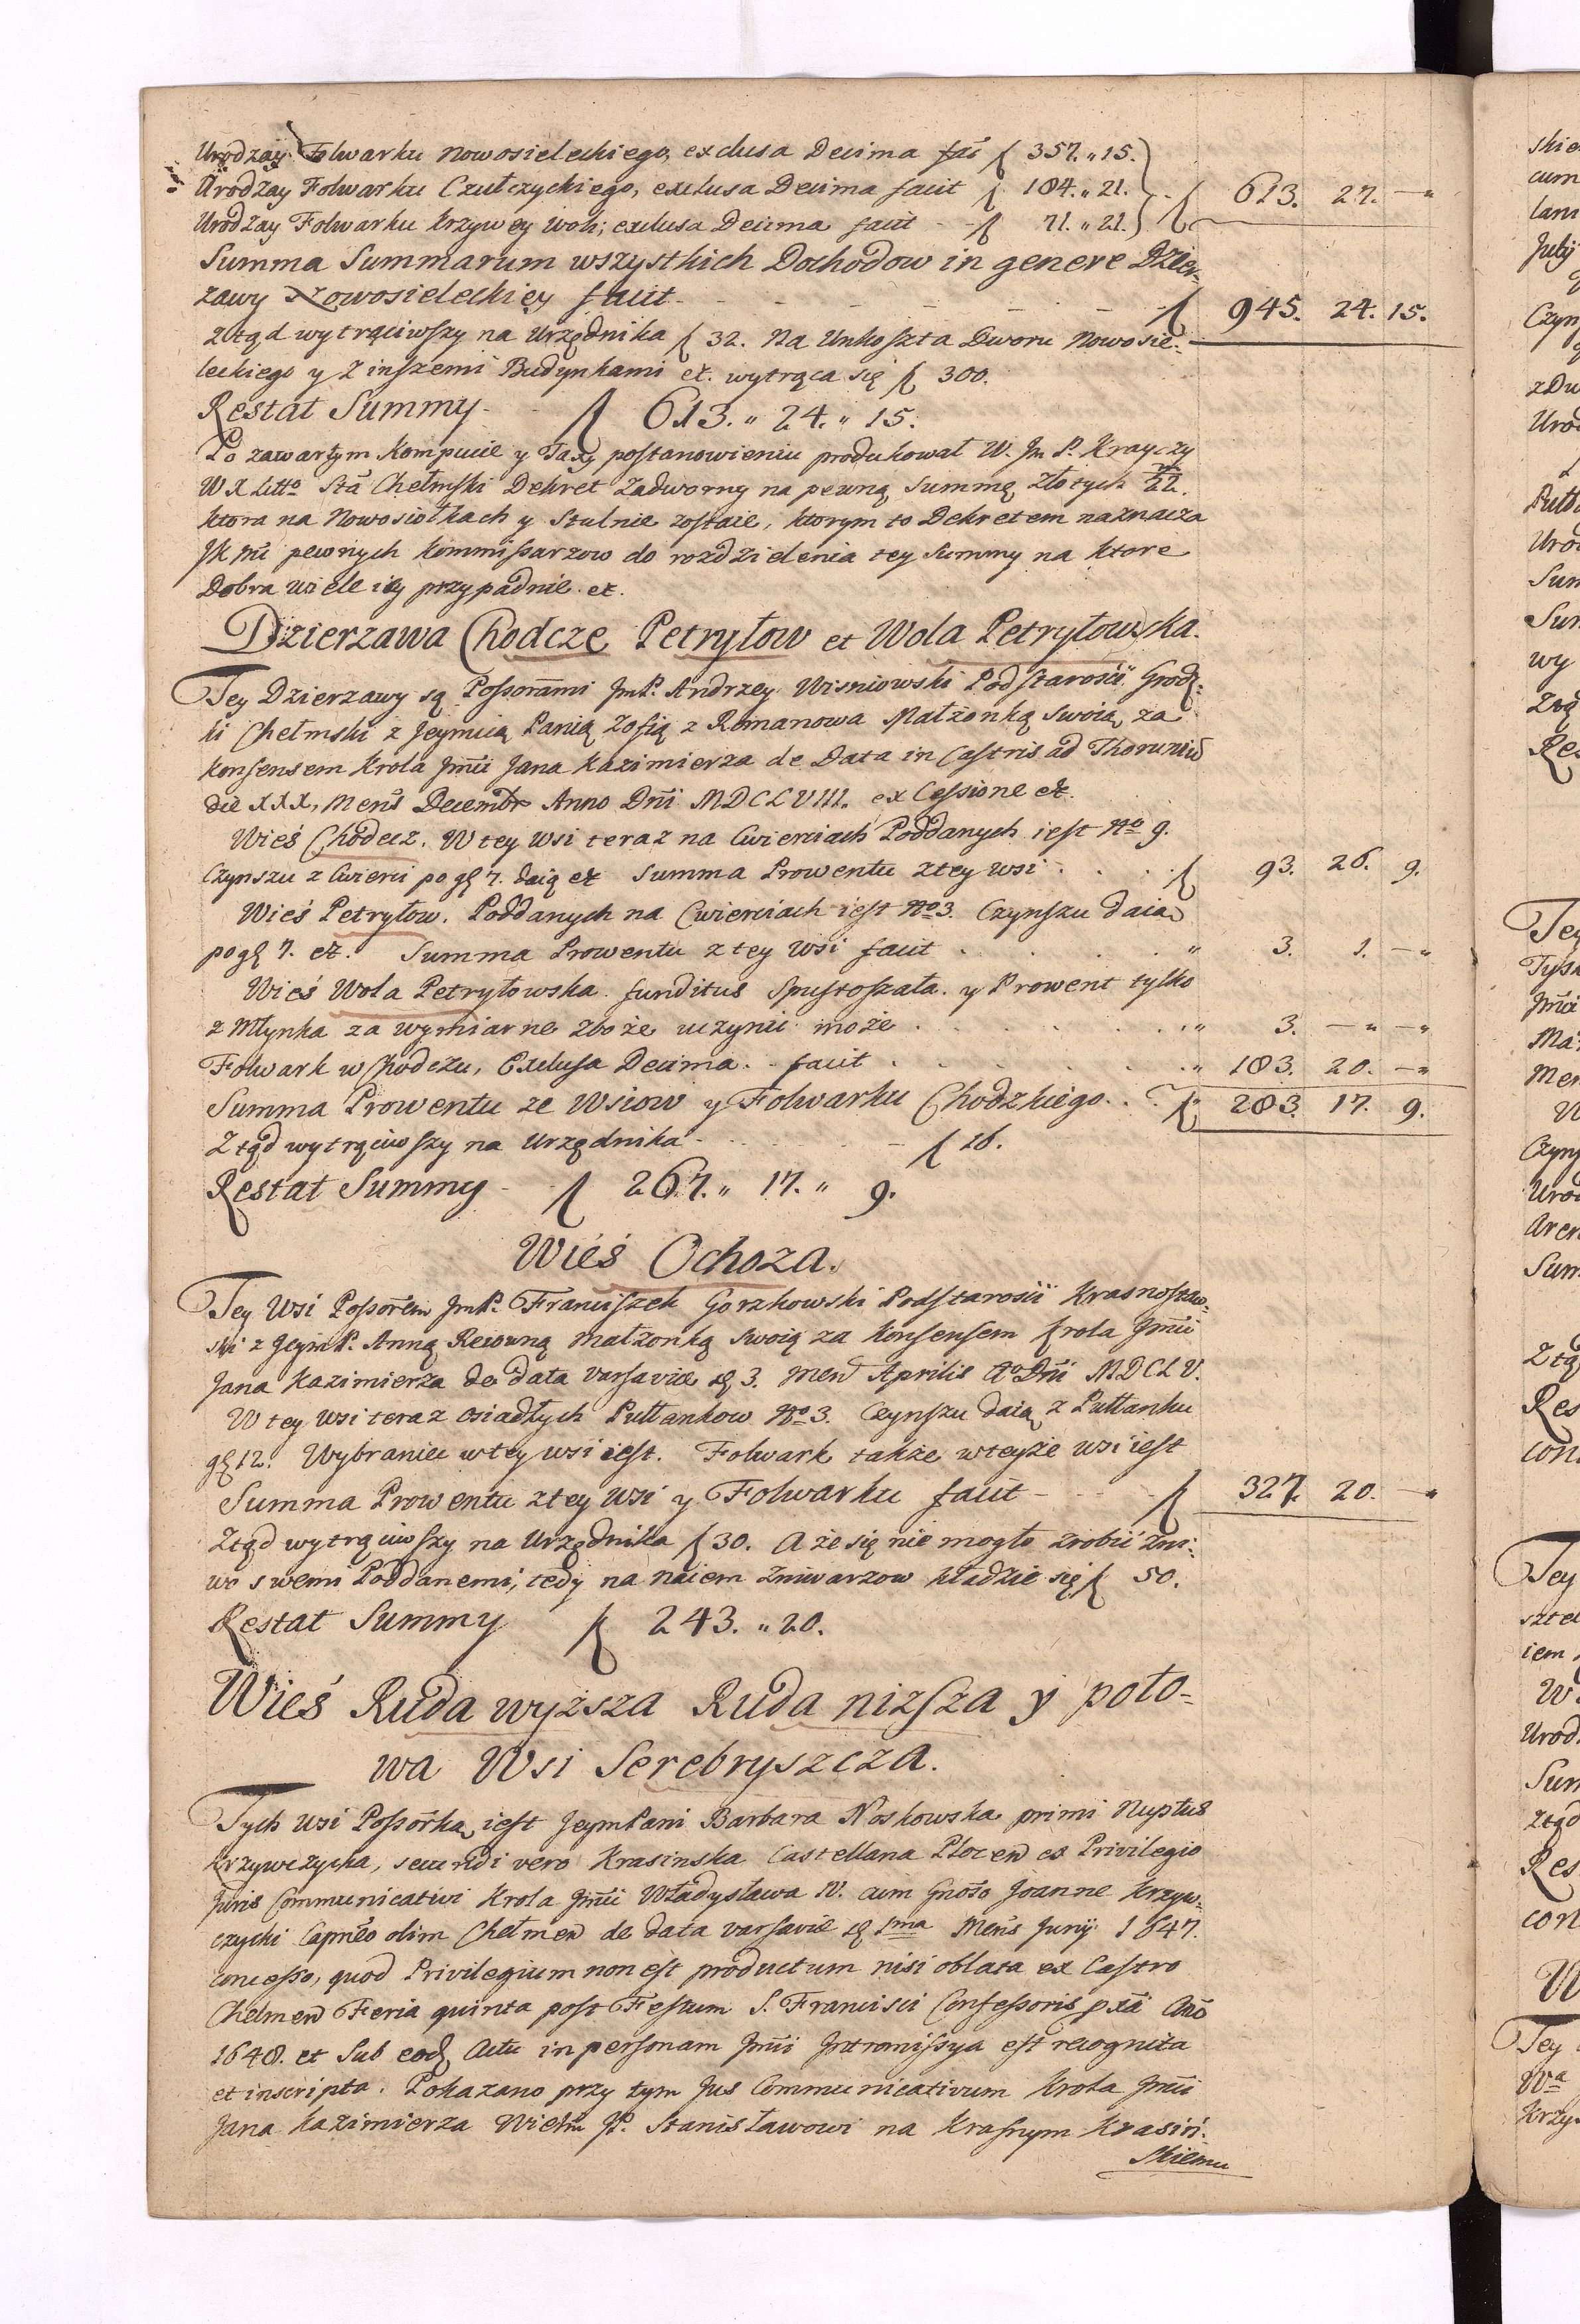 Urodzay Folwarku Nowosieleckiego, exclusa Decima fac f 357. " 15.
Urodzay Folwarku Czułczyckiego, exclusa Decima facit f 184. " 21. f 613. 27. — "
Urodzay Folwarku Krzywey Woli; exclusa Decima facit - - f 71. " 21.
Summa Summarum wszystkich Dochodow in genere Dzier-
zawy Nowosieleckiey facit - - - - - f 945. 24. 15.
ztąd wytrąciwszy na Urzędnika f 32. Na Unkoszta Dworu Nowosie-
leckiego y z inszemi Budynkami et. wytrąca się f 300.
Restat Summy - f 613. " 24. " 15.
Po zawartym Kompucie y Taxy postanowieniu produkował W. Jm P. Krayczy
W X Litto Sta Chełmski Dekret Zadworny na pewną Summę Złotych 22.
ktora na Nowosiołkach y Stulnie zostaie, ktorym to Dekretem naznacza
JK Mć pewnych Kommissarzow do rozdzielenia tey Summy na ktore
Dobra wiele iey przypadnie. et.
Dzierzawa Chodcze Petryłow et Wola Petryłowska.
Tey Dzierzawy są Possorami JmP. Andrzey Wisniowski Podstarości Grodz-
ki Chełmski z Jeymcią Panią Zofią z Romanowa Małżonką Swoią, za
Konsensem Krola Jmci Jana Kazimierza de Data in Castris ad Thorunid
die XXX, Mens Decembr Anno Dni MDCLVIII. ex Cessione et.
Wieś Chodecz. W tey Wsi teraz na Cwierciach Poddanych iest No 9.
Czynszu z Cwierci po gę 7. daią et Summa Prowentu z tey wsi . . . f 93. 26. 9.
Wieś Petryłow. Poddanych na Cwierciach iest No 3. Czynszu daią
po gę 7. et. Summa Prowentu z tey Wsi facit . . . " 3. 1. — "
Wieś Wola Petryłowska funditus Spustoszała. y Prowent tylko
z Młynka za wymiarne zboże uczynić może . . . " 3. — " — "
Folwark w Chodczu, Exclusa Decima. - facit . . . " 183. 20. — "
Summa Prowentu ze Wsiow y Folwarku Chodzkiego. . f 283. 17. 9.
Ztąd wytrąciwszy na Urzędnika - - - f 16.
Restat Summy - f 267. " 17. " 9.
Wieś Ochoza.
Tey Wsi Possorem JmP. Franciszek Gorzkowski Podstarości Krasnostaw-
ski z JeymP. Anną Recowną Małżonką Swoią za Konsensem Krola Jmci
Jana Kazimierza de data Varsavie dę 3. Men Aprilis Ao Dni MDCLV.
W tey Wsi teraz osiadłych Pułłankow No 3. Czynszu daią z Pułłanku
gę 12. Wybraniec w tey wsi iest. Folwark także w teyże wsi iest
Summa Prowentu z tey Wsi y Folwarku facit - - - f 327. 20. — "
Ztąd wytrąciwszy na Urzędnika f 30. A że się nie mogło zrobić żni-
wo swemi Poddanemi, tedy na naiem Zniwarzow kładzie się f 50.
Restat Summy f 243. " 20.
Wieś Ruda wyższa Ruda niższa y poło-
wa Wsi Serebryszcza.
Tych Wsi Possorką iest JeymPani Barbara Noskowska primi Nuptus
Krzywczycka, secundi vero Krasinska Castellana Plocen ex Privilegio
Juris Communicativi Krola Jmci Władysława IV. cum Gnoso Joanne Krzyw-
czycki Capneo olim Chełmen de data Varsavie dę 1ma Mens Junij 1647.
concesso, quod Privilegium non est productum nisi oblata ex Castro
Chelmen Feria quinta post Festum S. Francisci Confessoris pxa Ano
1648. et Sub eodę Actu in personam Jmci Intromissya est recognita
et inscripta. Pokazano przy tym Jus Communicativum Krola Jmci
Jana Kazimierza Wielm JP. Stanisławowi na Krasnym Krasiń-
skiemu